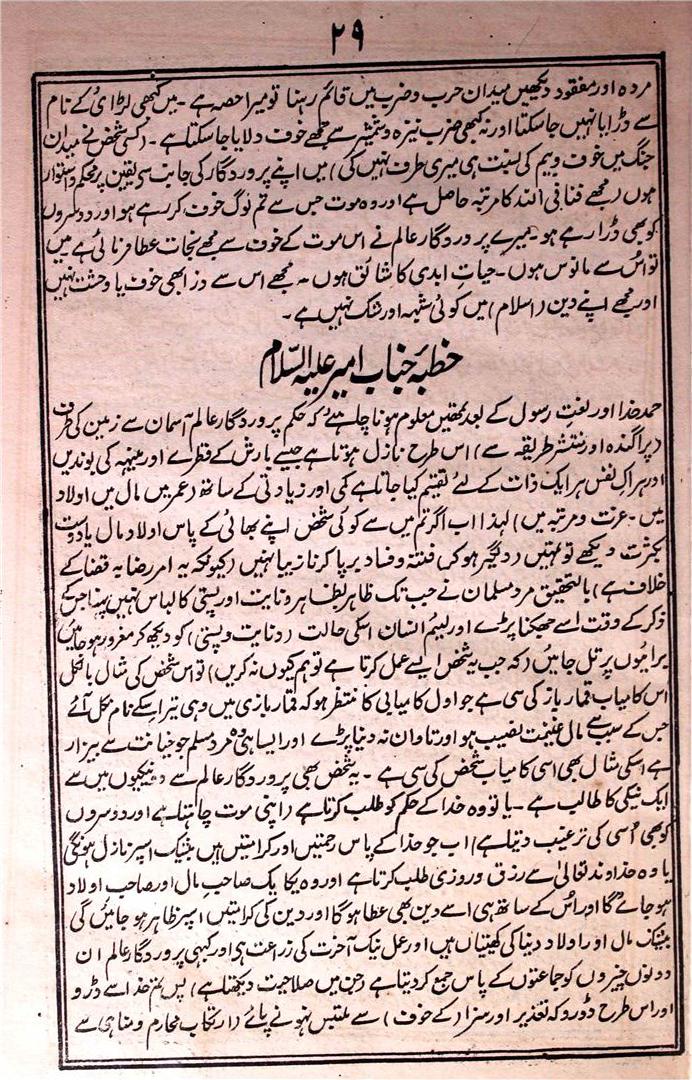 ۲۹
مردہ اور مفقود دیکھیں میدان حرب و ضرب میں قائم رہنا تو میرا حصہ ہے ۔ میں کبھی لڑائی کے نام
سے ڈرایا نہیں جا سکتا اور نہ کبھی ضرب نیزہ و شمشیر سے مجھے خوف دلایا جا سکتا ہے ۔ (کسی شخص نے میدان
جنگ میں خوف و بیم کی نسبت ہی میری طرف نہیں کی) میں اپنے پروردگار کی جانب سے یقین پر محکم و استوار
ہوں (مجھے فنا فی اللہ کا مرتبہ حاصل ہے اور وہ موت جس سے تم لوگ خوف کر رہے ہو اور دوسروں
کو بھی ڈرا رہے ہو ۔ میرے پروردگار عالم نے اس موت کے خوف سے مجھے نجات عطا فرمائی ہے میں
تو اس سے مانوس ہوں ۔ حیات ابدی کا شائق ہوں ۔ مجھے اس سے ذرا بھی خوف یا وحشت نہیں
اور مجھے اپنے دین (اسلام) میں کوئی شبہہ اور شک نہیں ہے ۔
خطبۂ جناب امیر علیہ السّلام
حمد خدا اور نعت رسول کے بعد تمھیں معلوم ہونا چاہئے کہ حکم پروردگار عالم آسمان سے زمین کی طرف
(پراگندہ اور منتشر طریقہ سے) اس طرح نازل ہوتا ہے جیسے بارش کے قطرے اور مینہہ کی بوندیں
اور ہر اک نفس ہر ایک ذات کے لئے تقسیم کیا جاتا ہے کمی اور زیادتی کے ساتھ (عمر میں مال میں اولاد
میں ۔ عزت و مرتبہ میں) لہذا اب اگر تم میں سے کوئی شخص اپنے بھائی کے پاس اولاد مال یا دوست
بکثرت دیکھے تو تمہیں (دلگیر ہو کر) فتنہ و فساد برپا کرنا زیبا نہیں (کیونکہ یہ امر رضا بہ قضا کے
خلاف ہے) بالتحقیق مرد مسلمان نے جب تک ظاہر بظاہر دنایت اور پستی کا لباس نہیں پہنا جس کے
ذکر کے وقت اسے جھکنا پڑے اور لئیم انسان اسکی حالت (دنایت و پستی) کو دیکھ کر مغرور ہو جائیں
برایوں پر تل جائیں (کہ جب یہ شخص ایسے عمل کرتا ہے تو ہم کیوں نہ کریں) تو اس شخص کی مثال بالکل
اس کامیاب قمار باز کی سی ہے جو اول کامیابی کا منتظر ہو کہ قمار بازی میں وہی تیر اسکے نام نکل آئے
جس کے سبب سے مال غنیمت نصیب ہو اور تاوان نہ دینا پڑے اور ایسا ہی وہ مرد مسلم جو خیانت سے بیزار
ہے اسکی مثال بھی اسی کامیاب شخص کی سی ہے ۔ یہ شخص بھی پروردگار عالم سے دو نیکیوں میں سے
ایک نیکی کا طالب ہے ۔ یا تو وہ خدا کے حکم کو طلب کرتا ہے (اپنی موت چاہتا ہے اور دوسروں
کو بھی اُسی کی ترغیب دیتا ہے) اب جو خدا کے پاس رحمتیں اور کرامتیں ہیں بیشک اسپر نازل ہونگی
یا وہ خداوند تعالیٰ سے رزق و روزی طلب کرتا ہے اور وہ یکایک صاحب مال اور صاحب اولاد
ہو جائے گا اور اس کے ساتھ ہی اسے دین بھی عطا ہوگا اور دین کی کرامتیں اسپر ظاہر ہو جائیں گی
بیشک مال اور اولاد دنیا کی کھیتیاں ہیں اور عمل نیک آخرت کی زراعت ہی اور کبھی پروردگار عالم ان
دونوں چیزوں کو جماعتوں کے پاس جمع کر دیتا ہے (جن میں صلاحیت دیکھتا ہے) پس تم خدا سے ڈرو
اور اس طرح ڈرو کہ تعذیر اور سزا (کے خوف) سے ملتبس نہونے پائے (ارتکاب محارم و مناہی سے